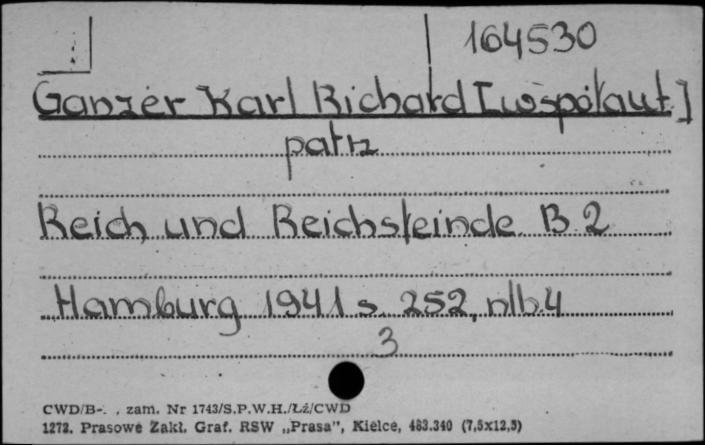 164530
Ganzer Karl Richard [współaut.]
patrz
Reich und Reichsfeinde. B. 2
Hamburg 1941 s. 252, nlb. 4
3
CWD/B-. , zam. Nr 1743/S.P.W.H./Łź/CWD
1273. Prasowe Zakł. Graf. RSW „Prasa”, Kielce, 483.340 (7,5x12,5)